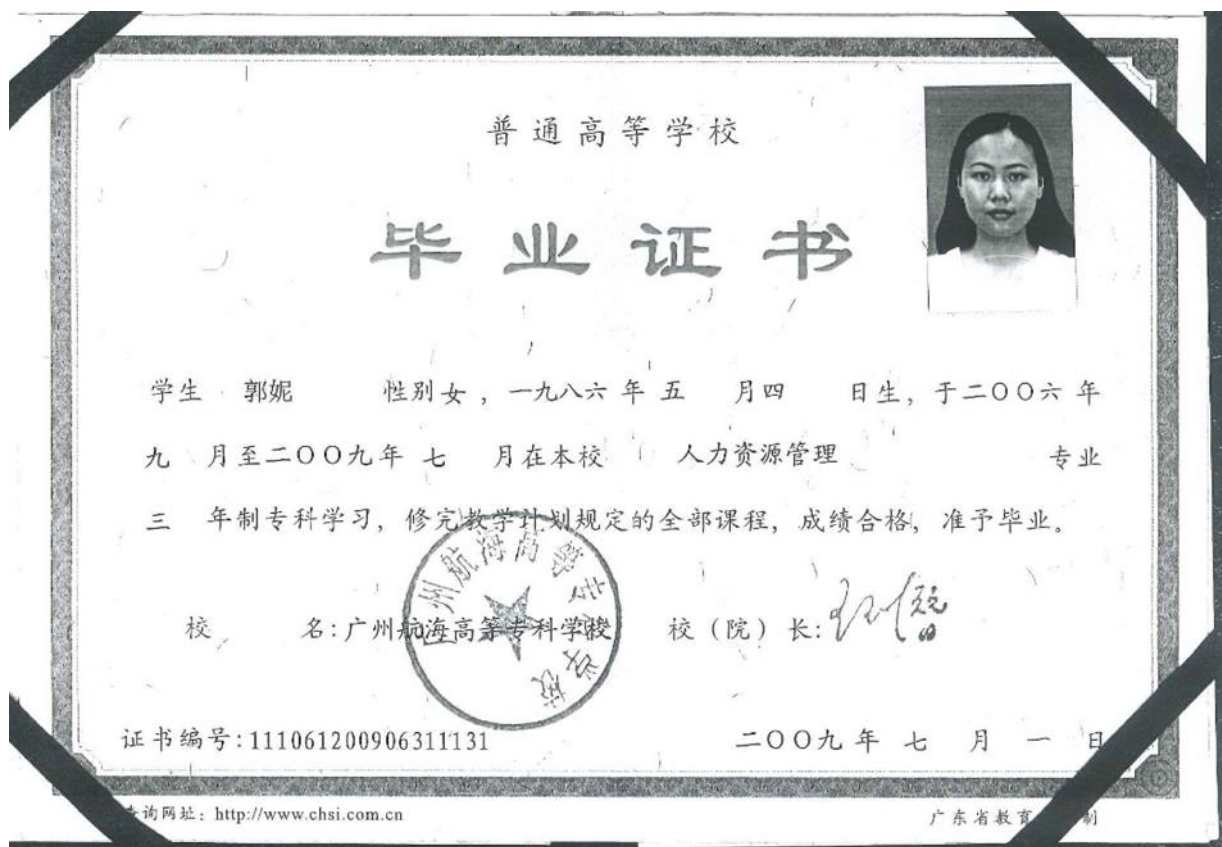 普通高等学校
毕业证书
学生 郭妮 性别女，一九八六年五月四日生，于二〇〇六年
九月至二〇〇九年七月在本校人力资源管理专业
三年制专科学习，修完教学计划规定的全部课程，成绩合格，准予毕业。
校名：广州航海高等专科学校 校（院）长：
广州航海高等专科学校
证书编号：111061200906311131 二〇〇九年七月一日
查询网址：http://www.chsi.com.cn 广东省教育 制